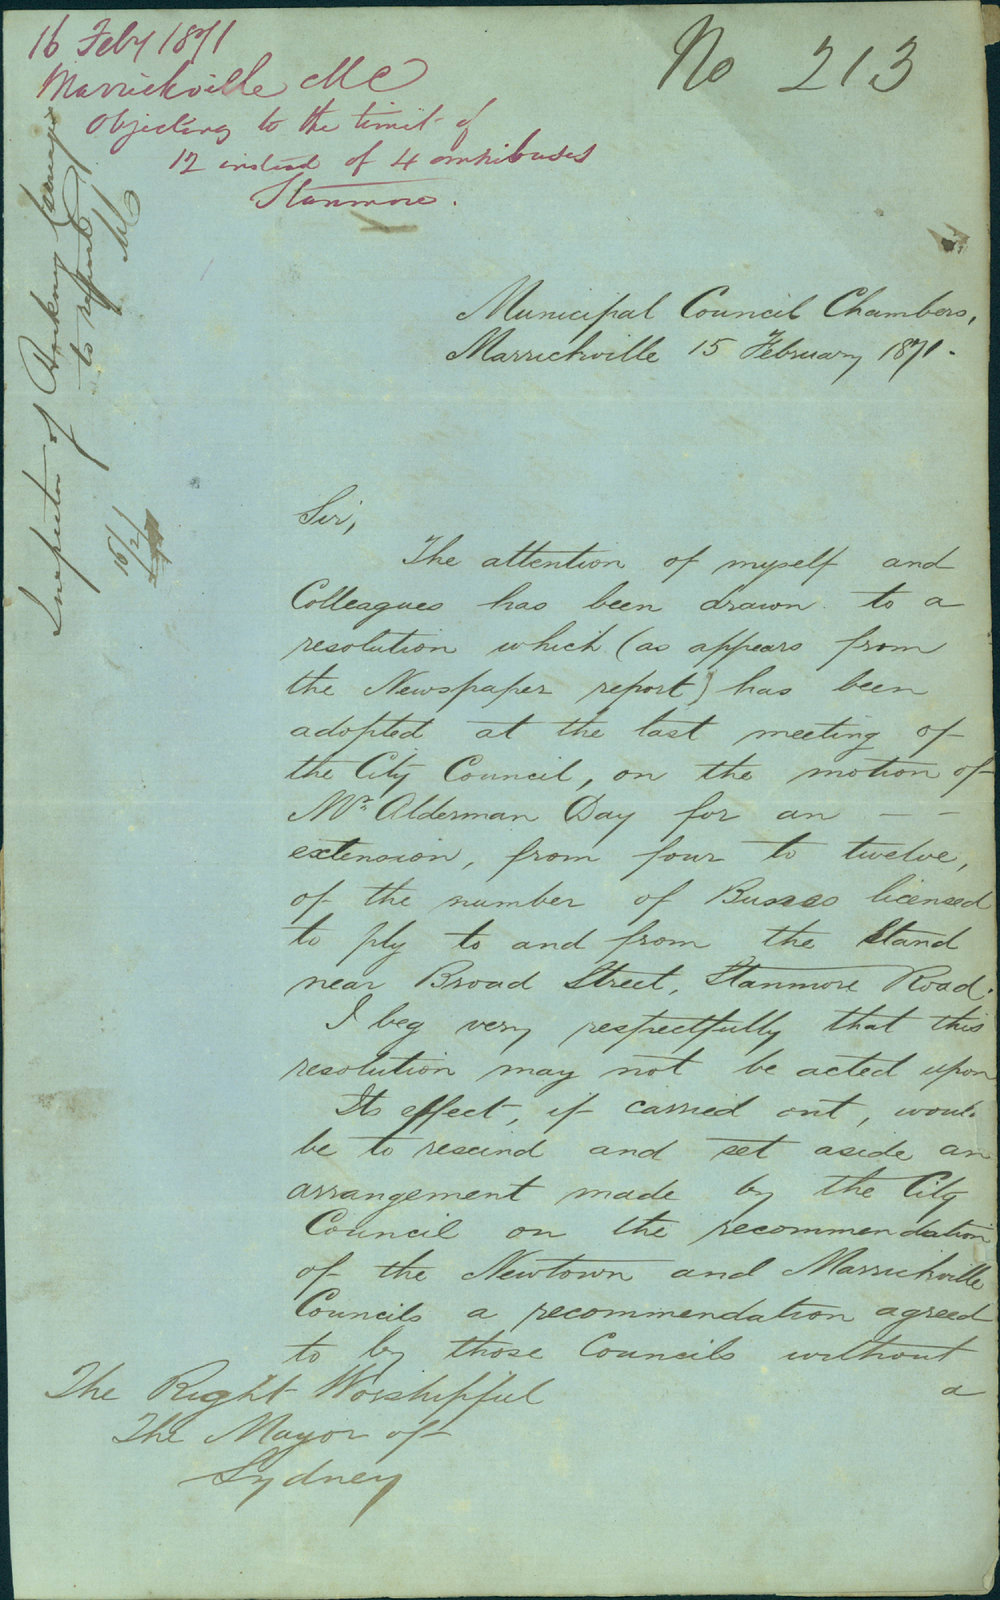 16 Feby 1871
Marrickville MC
Objecting to the limit of
12 instead of 4 omnibuses
Stanmore.
No 213
Inspector of Hackney Carriages
to report
16/2/71
Municipal Council Chambers,
Marrickville 15 February 1871.
Sir,
The attention of myself and
Colleagues has been drawn to a
resolution which (as appears from
the Newspaper report) has been
adopted at the last meeting of
the City Council, on the motion of
Mr. Alderman Day for an — —
extension, from four to twelve,
of the number of Busses licensed
to ply to and from the Stand
near Broad Street, Stanmore Road.
I beg very respectfully that this
resolution may not be acted upon
Its effect, if carried out, would
be to rescind and set aside an
arrangement made by the City
Council on the recommendation
of the Newtown and Marrickville
Councils a recommendation agreed
to by those Councils without
a
The Right Worshipful
The Mayor of
Sydney